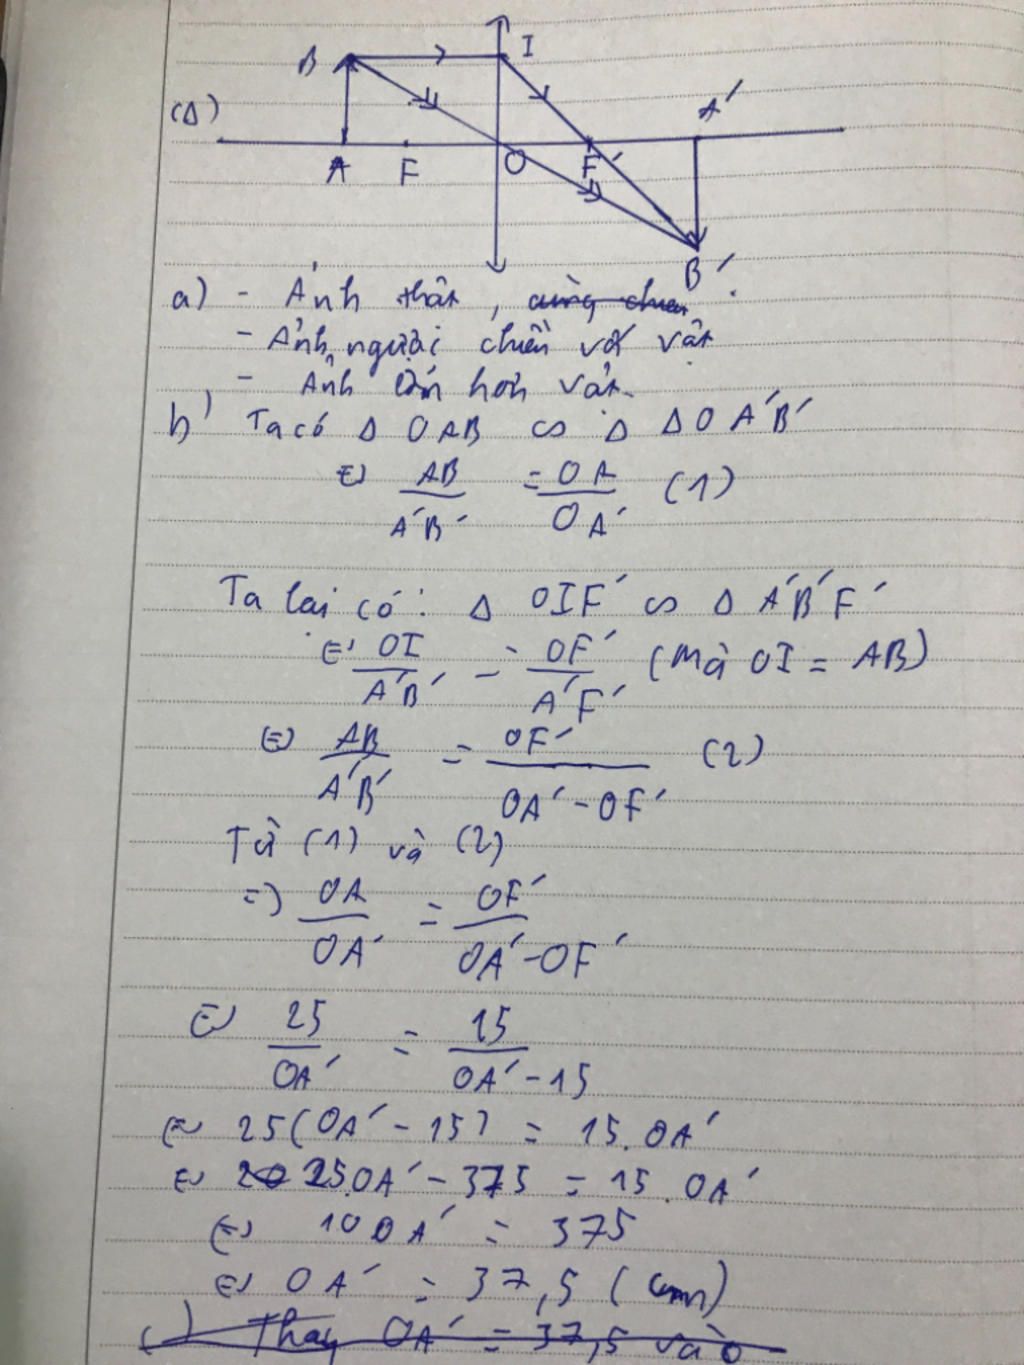 B I
(Δ) A'
A F O F'
B'
a) - Ảnh thật, cùng chiều
- Ảnh ngược chiều với vật
- Ảnh lớn hơn vật.
b) Ta có Δ OAB ∽ Δ Δ OA'B'
⇔ AB / A'B' = OA / OA' (1)
Ta lại có: Δ OIF' ∽ Δ A'B'F'
⇔ OI / A'B' = OF' / A'F' (Mà OI = AB)
⇔ AB / A'B' = OF' / OA' - OF' (2)
Từ (1) và (2)
=> OA / OA' = OF' / OA' - OF'
⇔ 25 / OA' = 15 / OA' - 15
⇔ 25(OA' - 15) = 15.OA'
⇔ 25.OA' - 375 = 15.OA'
⇔ 10 OA' = 375
⇔ OA' = 37,5 (cm)
c) Thay OA' = 37,5 vào